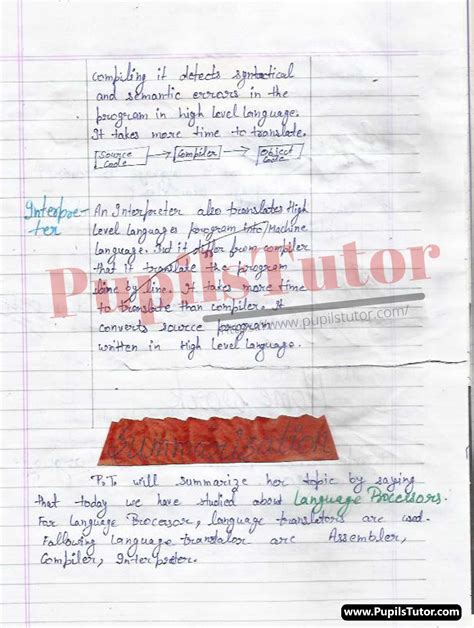 compiling it detects syntactical
and semantic errors in the
program in high level language.
It takes more time to translate.
Source Code → Compiler → Object Code
Interpre-
ter
An Interpreter also translates High
Level Languages program Into/Machine
Language. But it differ from compiler
that it translate the program
line by line. It takes more time
to translate than compiler. It
converts source program
written in High Level Language.
PupilsTutor
https://www.pupilstutor.com/
Summarization
P.T. will summarize her topic by saying
that today we have studied about Language Processors.
For Language Processor, language translators are used.
Following language translator are Assembler,
Compiler, Interpreter.
www.PupilsTutor.com